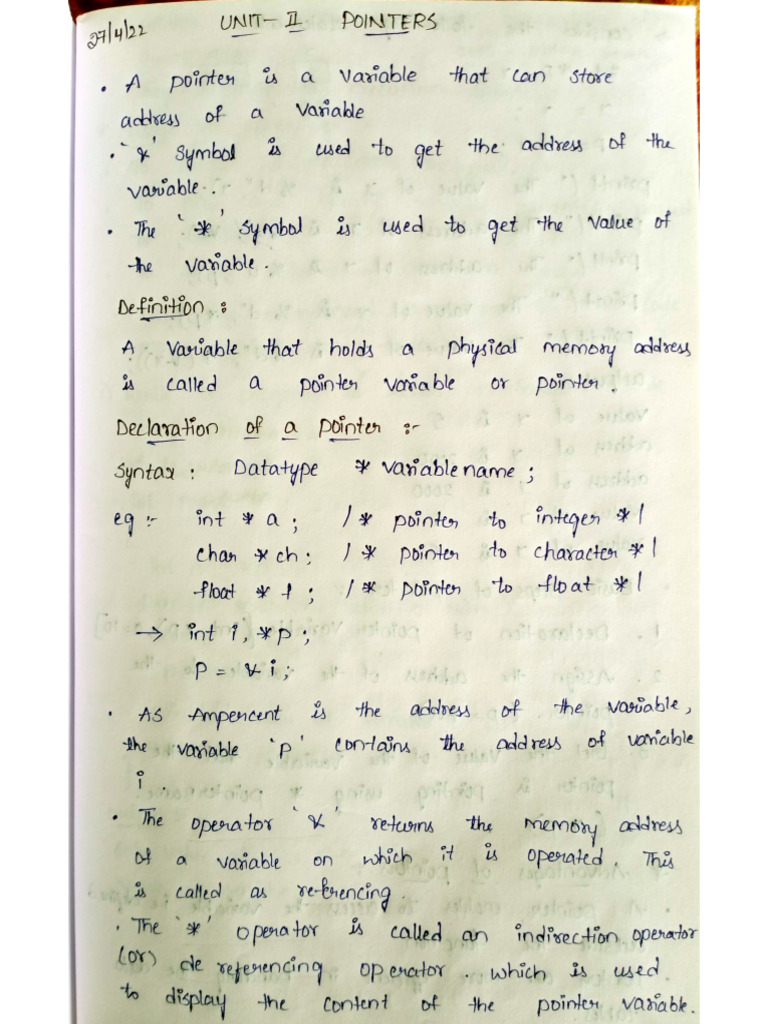 27/4/22
UNIT- II POINTERS
• A pointer is a variable that can store
address of a variable
• '&' symbol is used to get the address of the
variable.
• The '*' symbol is used to get the value of
the variable.
Definition :
A variable that holds a physical memory address
is called a pointer variable or pointer.
Declaration of a pointer :-
Syntax : Datatype * variable name ;
eg :- int * a ; /* pointer to integer */
char * ch ; /* pointer to character */
float * f ; /* pointer to float */
→ int i, *p ;
P = & i ;
• AS Ampercent is the address of the variable,
the variable 'p' contains the address of variable
i .
• The operator '&' returns the memory address
of a variable on which it is operated. This
is called as referencing.
• The '*' operator is called an indirection operator
(or) de referencing operator . which is used
to display the content of the pointer variable.